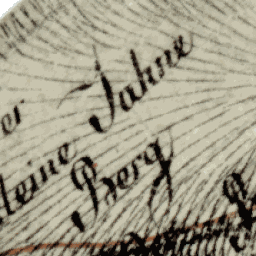 er
Jahne
leine
Berg